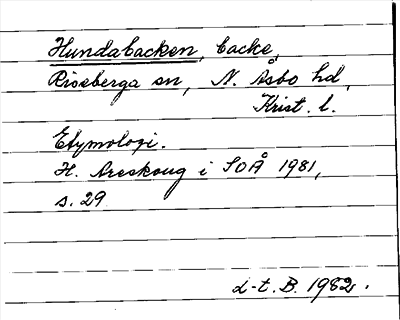 Hundabacken, backe,
Riseberga sn, N. Åsbo hd,
Krist. l.
Etymologi.
H. Areskoug i SOÅ 1981,
s. 29
d-t. B. 1982.